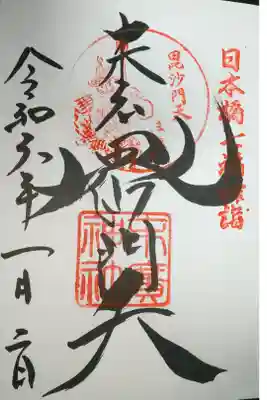 日本橋七福神詣
毘沙門天
末廣
毘沙門天
末廣神社
令和六年一月二日